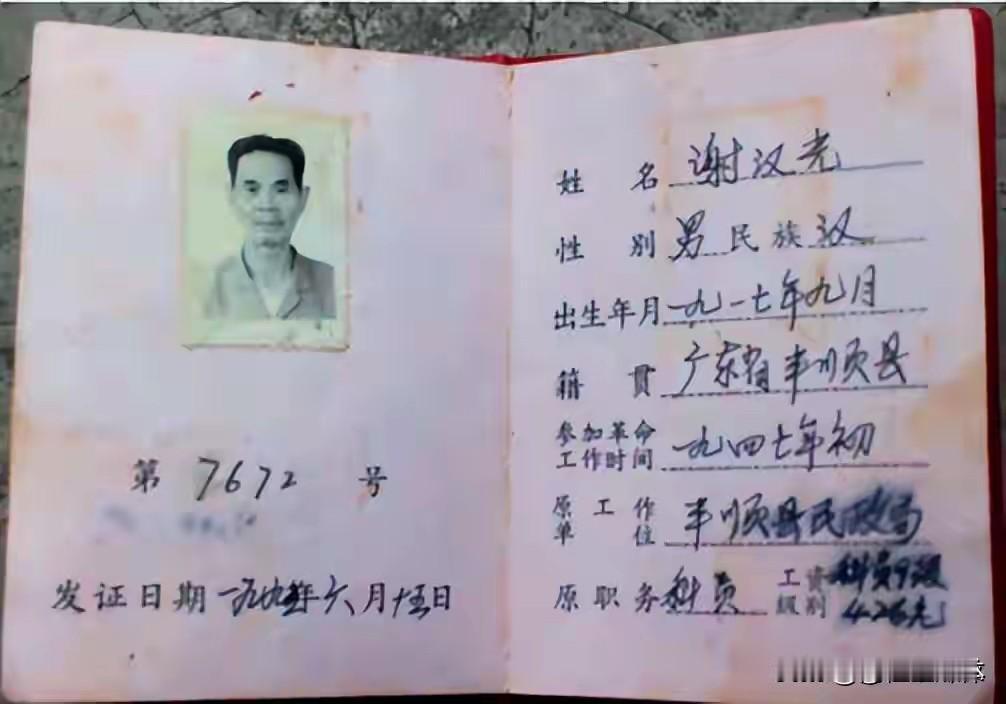 第 7672 号
发证日期 一九九五年六月十五日
姓名 谢汉光
性别 男 民族 汉
出生年月 一九一七年九月
籍贯 广东省丰顺县
参加革命工作时间 一九四七年初
原工作单位 丰顺县民政局
原职务 科员 工资级别 科员9级
426元